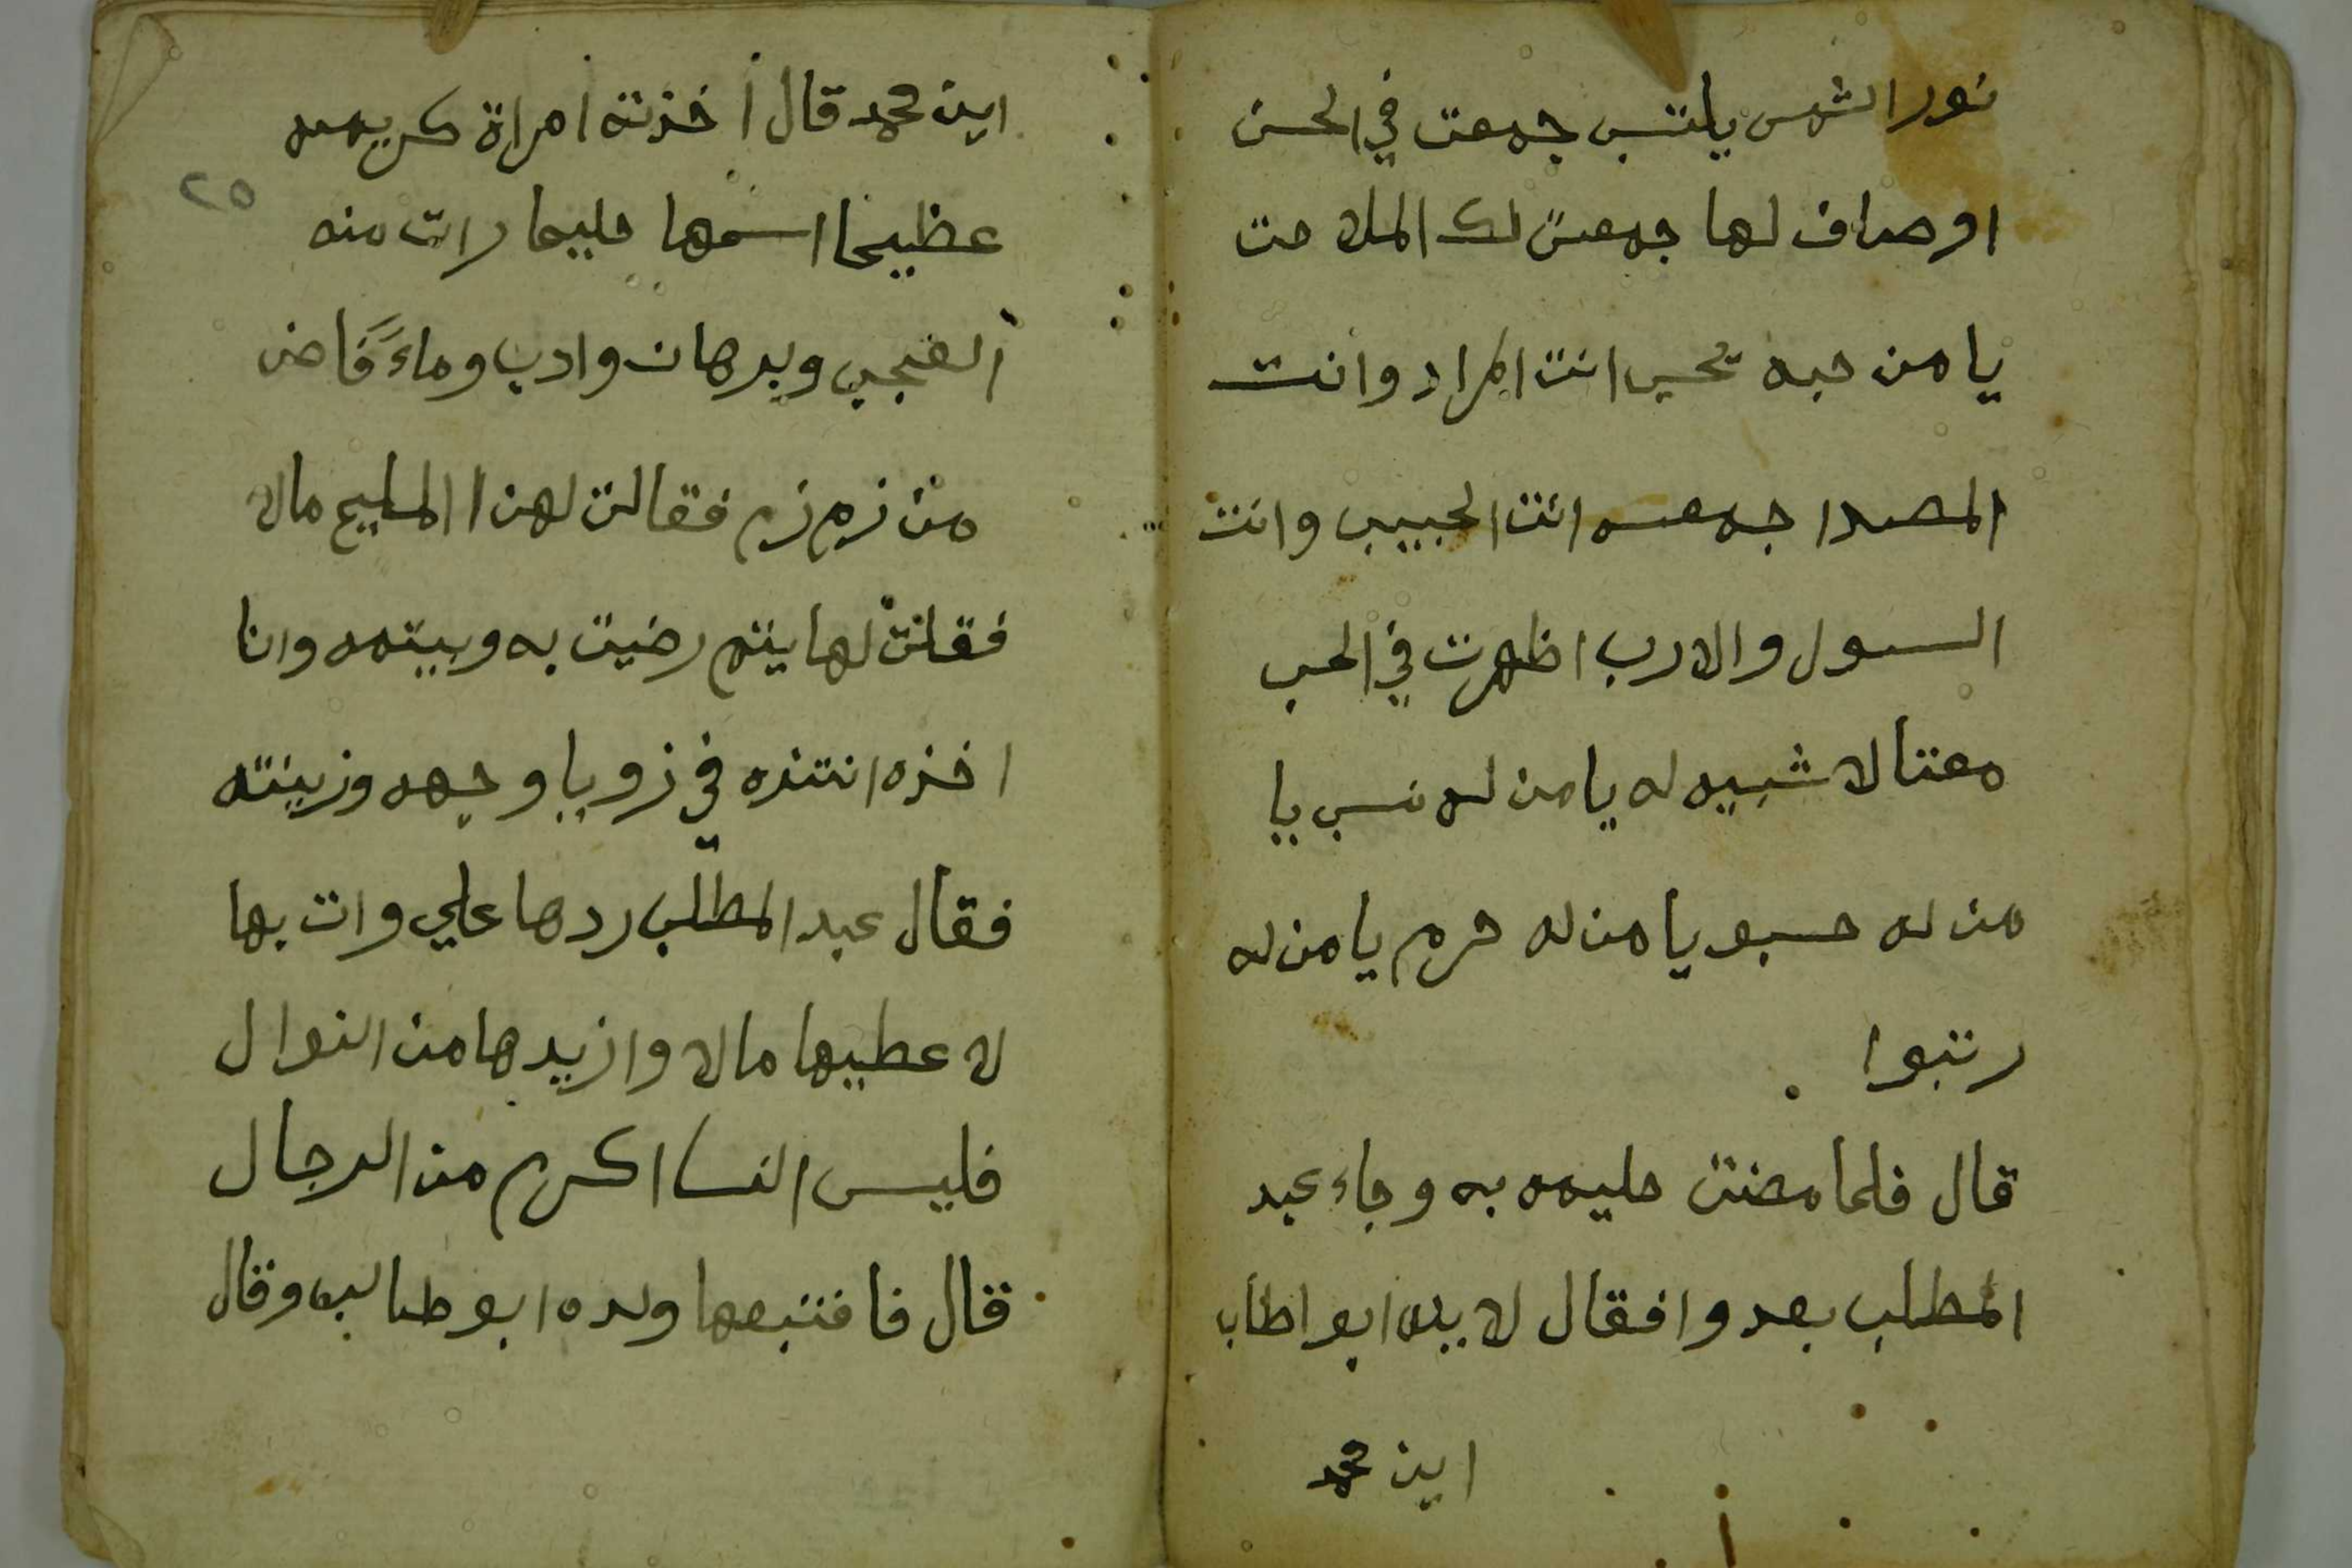 نور الشمس يلتسب جمعت في الحسن
اوصاف لها جمعت لك الملاحت
يا من حبه تحسي انت المراد وانت
المصدا جمعه انت الحبيب وانت
السول والادب اظهرت في الحب
معنا لا شبيه له يا من له نسب يا
من له حسبو يا من له حرم يا من له
رتبوا
قال فلما مضت حليمه به وجاء عبد
المطلب بعدوا فقال لابيه ابوا طاب
اين محمد
اين محمد قال أخذته امراة كريمه
عظيما اسمها حليما رات منه
العجب وبرهان وادب وماءً فاض
من زم زم فقالت لهذا المليح مال
فقلت لها يتم رضيت به وبيتمه وانا
اخذه انتذه في زويا وجهه وزينته
فقال عبد المطلب ردها علي وات بها
لاعطيها مالا وازيدها من النوال
فليس النسا اكرم من الرجال
قال فافتبعها ولده ابو طالب وقال
٢٥